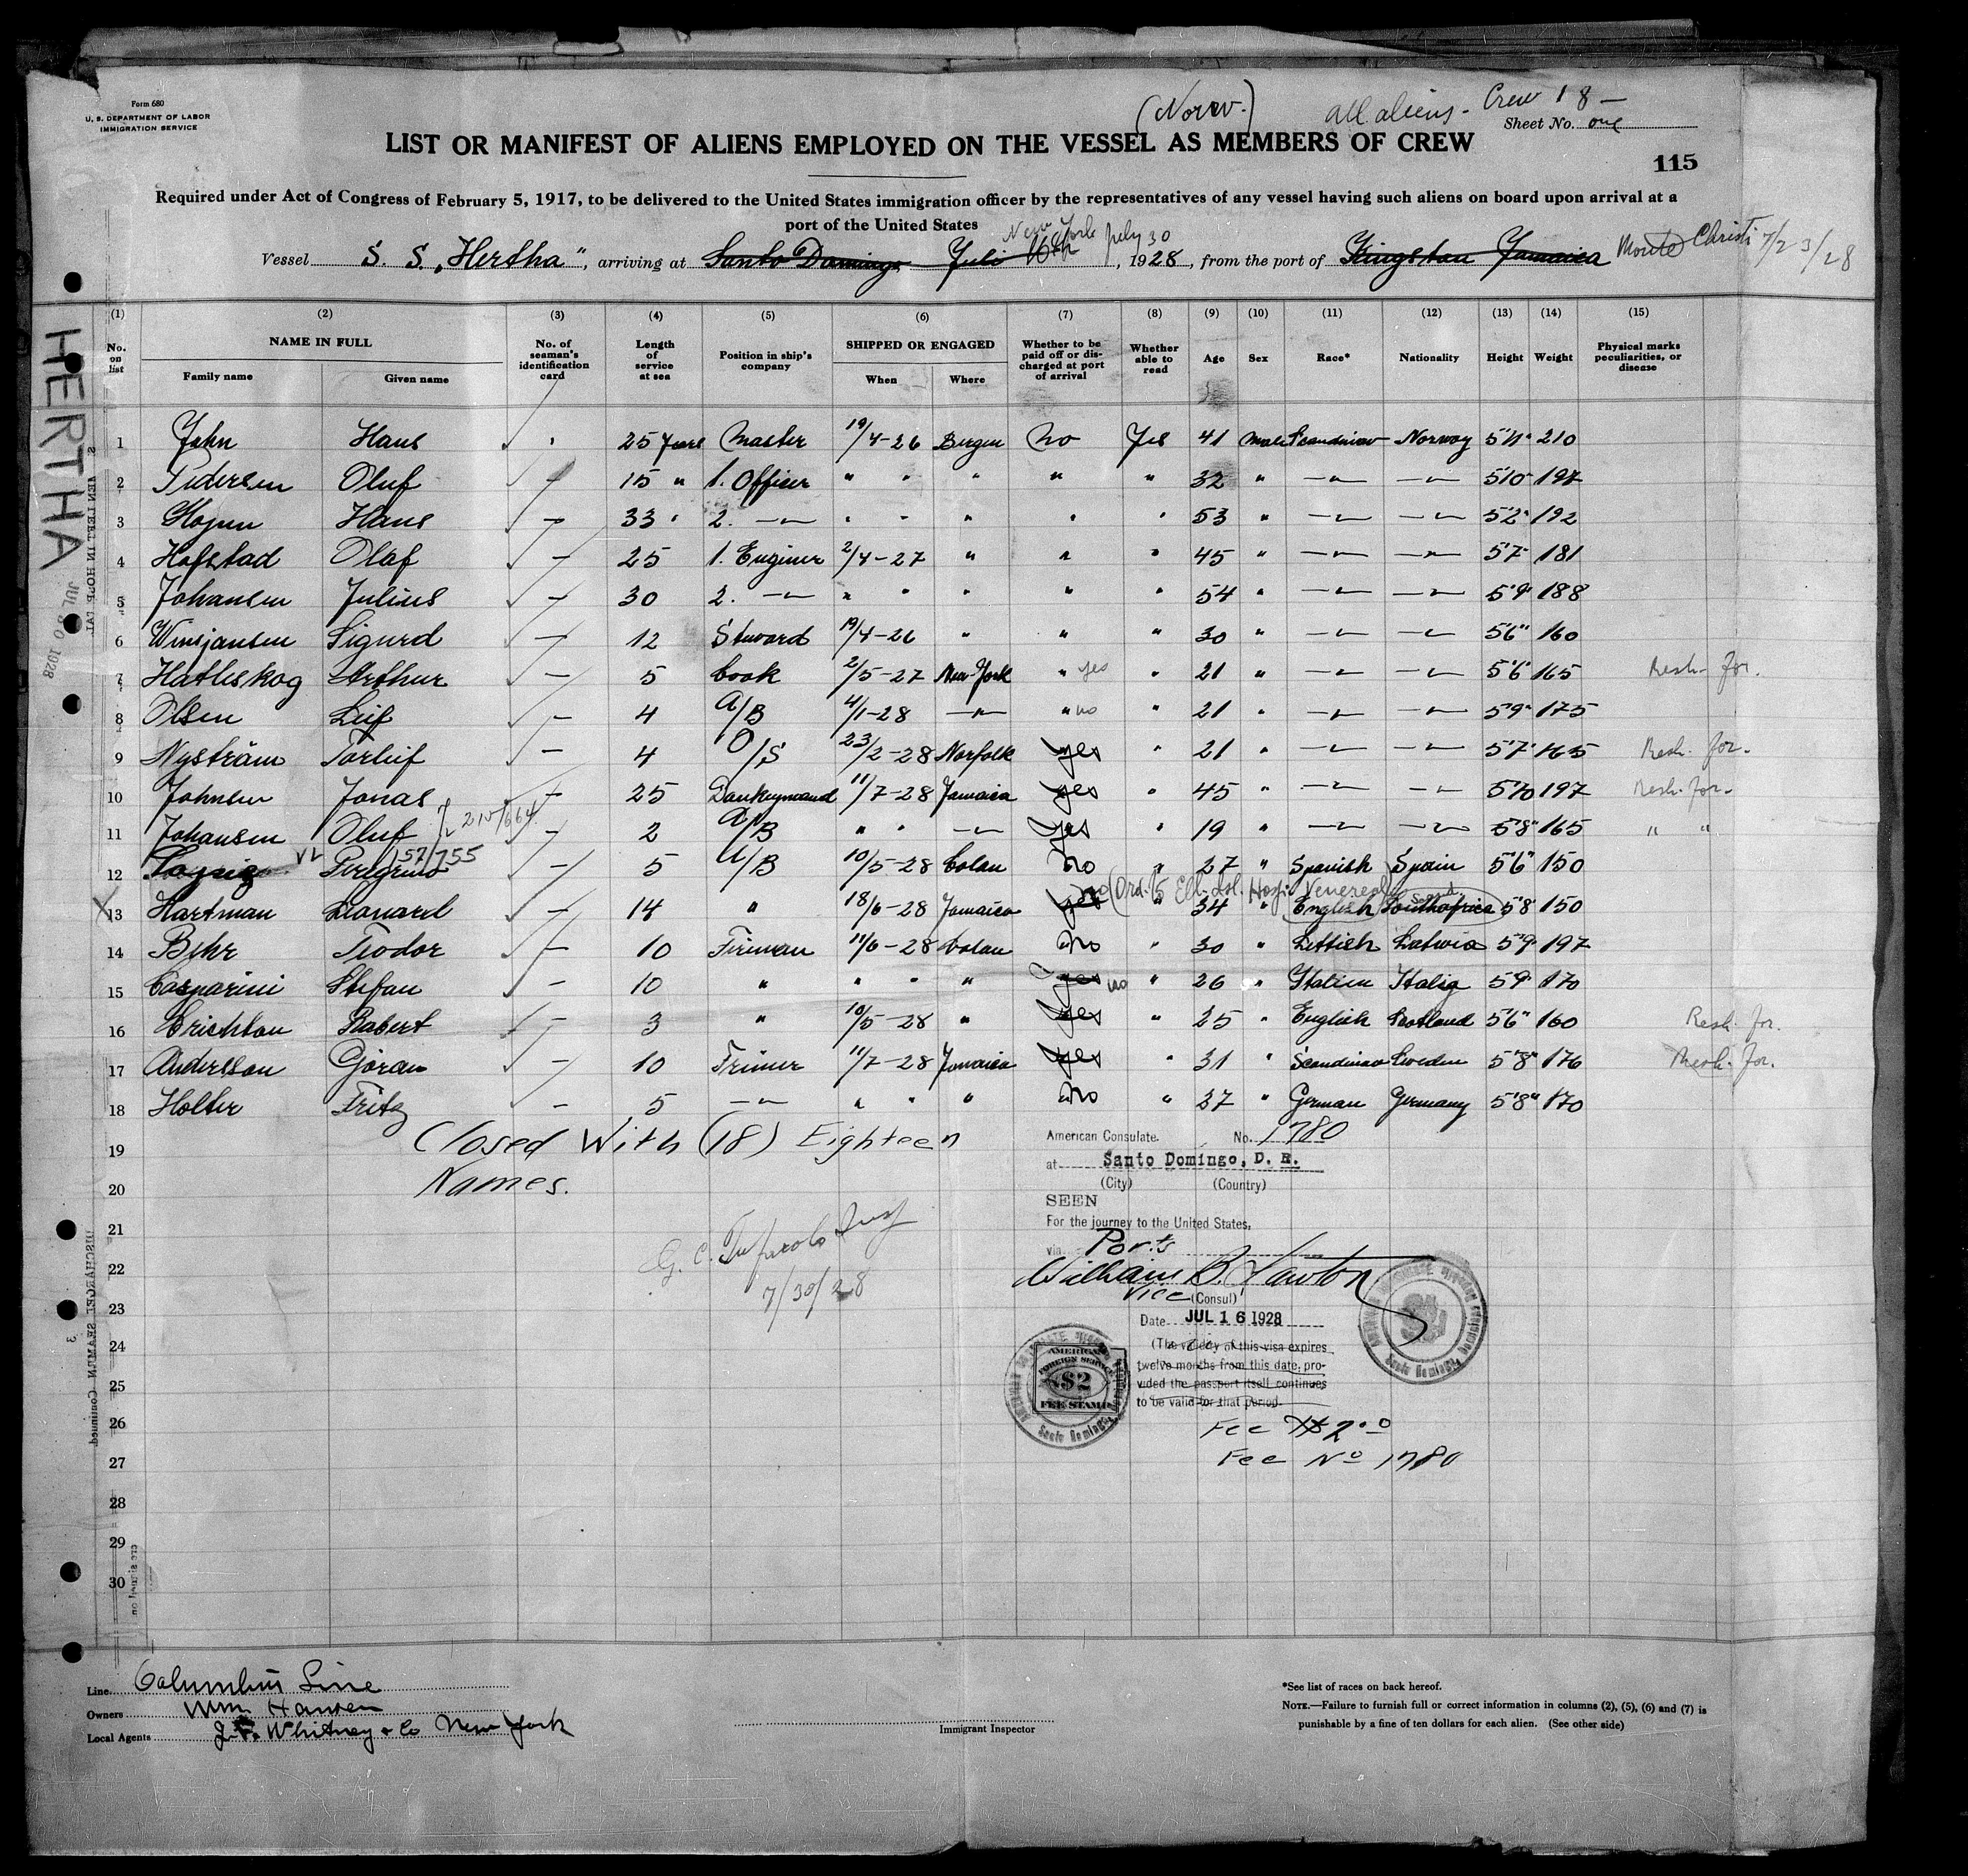 Form 680
U. S. DEPARTMENT OF LABOR
IMMIGRATION SERVICE
(Norw.) all aliens - Crew 18 —
Sheet No. one
LIST OR MANIFEST OF ALIENS EMPLOYED ON THE VESSEL AS MEMBERS OF CREW
115
Required under Act of Congress of February 5, 1917, to be delivered to the United States immigration officer by the representatives of any vessel having such aliens on board upon arrival at a
port of the United States
New York July 30
Vessel S. S. „Hertha", arriving at Santo Domingo Juli 16th, 1928, from the port of Kingston Jamaica Monte Christi 7/23/28
(1) (2) (3) (4) (5) (6) (7) (8) (9) (10) (11) (12) (13) (14) (15)
No. on list NAME IN FULL Family name Given name No. of seaman's identification card Length of service at sea Position in ship's company SHIPPED OR ENGAGED When Where Whether to be paid off or discharged at port of arrival Whether able to read Age Sex Race* Nationality Height Weight Physical marks peculiarities, or disease
1 John Hans 25 Years Master 19/4-26 Bergen No Yes 41 male Scandinav Norway 5'11" 210
2 Pedersen Oluf — 15 " 1. Officer " " " " " 32 " —"— —"— 5'10" 197
3 Hans — 33 " 2. —"— " " " " " 53 " —"— —"— 5'2" 192
4 Hofstad Olaf — 25 1. Enginer 2/4-27 " " " 45 " —"— —"— 5'7" 181
5 Johansen Julius — 30 2. —"— " " " " " 54 " —"— —"— 5'9" 188
6 Winsjansen Sigurd — 12 Steward 19/4-26 " " " 30 " —"— —"— 5'6" 160
7 Hatleskog Arthur — 5 Cook 2/5-27 New-York " yes " 21 " —"— —"— 5'6" 165 Resh. for.
8 Olsen Leif — 4 A/B 4/1-28 —"— " no " 21 " —"— —"— 5'9" 175
9 Nyström Torleif — 4 O/S 23/2-28 Norfolk yes " 21 " —"— —"— 5'7" 165 Resh. for.
10 Johnsen Jonas — 25 Donkeymand 11/7-28 Jamaica yes " 45 " —"— —"— 5'10 197 Resh. for.
11 Johansen Oluf — 2 A/B " " —"— Yes " 19 " —"— —"— 5'8" 165 " "
12 Peregrino 157/755 — 5 A/B 10/5-28 Colon No " 27 " Spanish Spain 5'6" 150
no (Ord. to Ell. Isl. Hosp. Venereal)
13 Hartman Leonard — 14 " 18/6-28 Jamaica yes " 34 " English Southafrica 5'8" 150
14 Behr Teodor — 10 Fireman 11/6-28 Colon No " 30 " Lettish Latwia 5'9" 197
15 Casparini Stefan — 10 " " " " yes no " 26 " Italien Italia 5'9" 170
16 Crichton Robert — 3 " 10/5-28 " Yes " 25 " English Scotland 5'6" 160 Resh. for.
17 Andersson Göran — 10 Trimer 11/7-28 Jamaica yes " 31 " Scandinav Sweden 5'8" 176 Resh. for.
18 Holter Fritz — 5 —"— " " " No " 27 " German Germany 5'8" 170
19 Closed With (18) Eighteen
20 Names.
21
22
23
24
25
26
27
28
29
30
7/30/28
American Consulate. No. 1780
at Santo Domingo, D. R.
(City) (Country)
SEEN
For the journey to the United States,
via Ports
William B. Lawton
Vice (Consul)
Date JUL 16 1928
(The validity of this visa expires
twelve months from this date, pro-
vided the passport itself continues
to be valid for that period.
AMERICAN
FOREIGN SERVICE
$2
FEE STAMP
Santo Domingo
Fee $2.00
Fee No 1780
HERTHA
JUL 30 1928
DISCHARGED SEAMEN Continued
Line Columbus Line
Owners Wm Hansen
Local Agents J.F. Whitney & Co New York
Immigrant Inspector
*See list of races on back hereof.
NOTE.—Failure to furnish full or correct information in columns (2), (5), (6) and (7) is
punishable by a fine of ten dollars for each alien. (See other side)